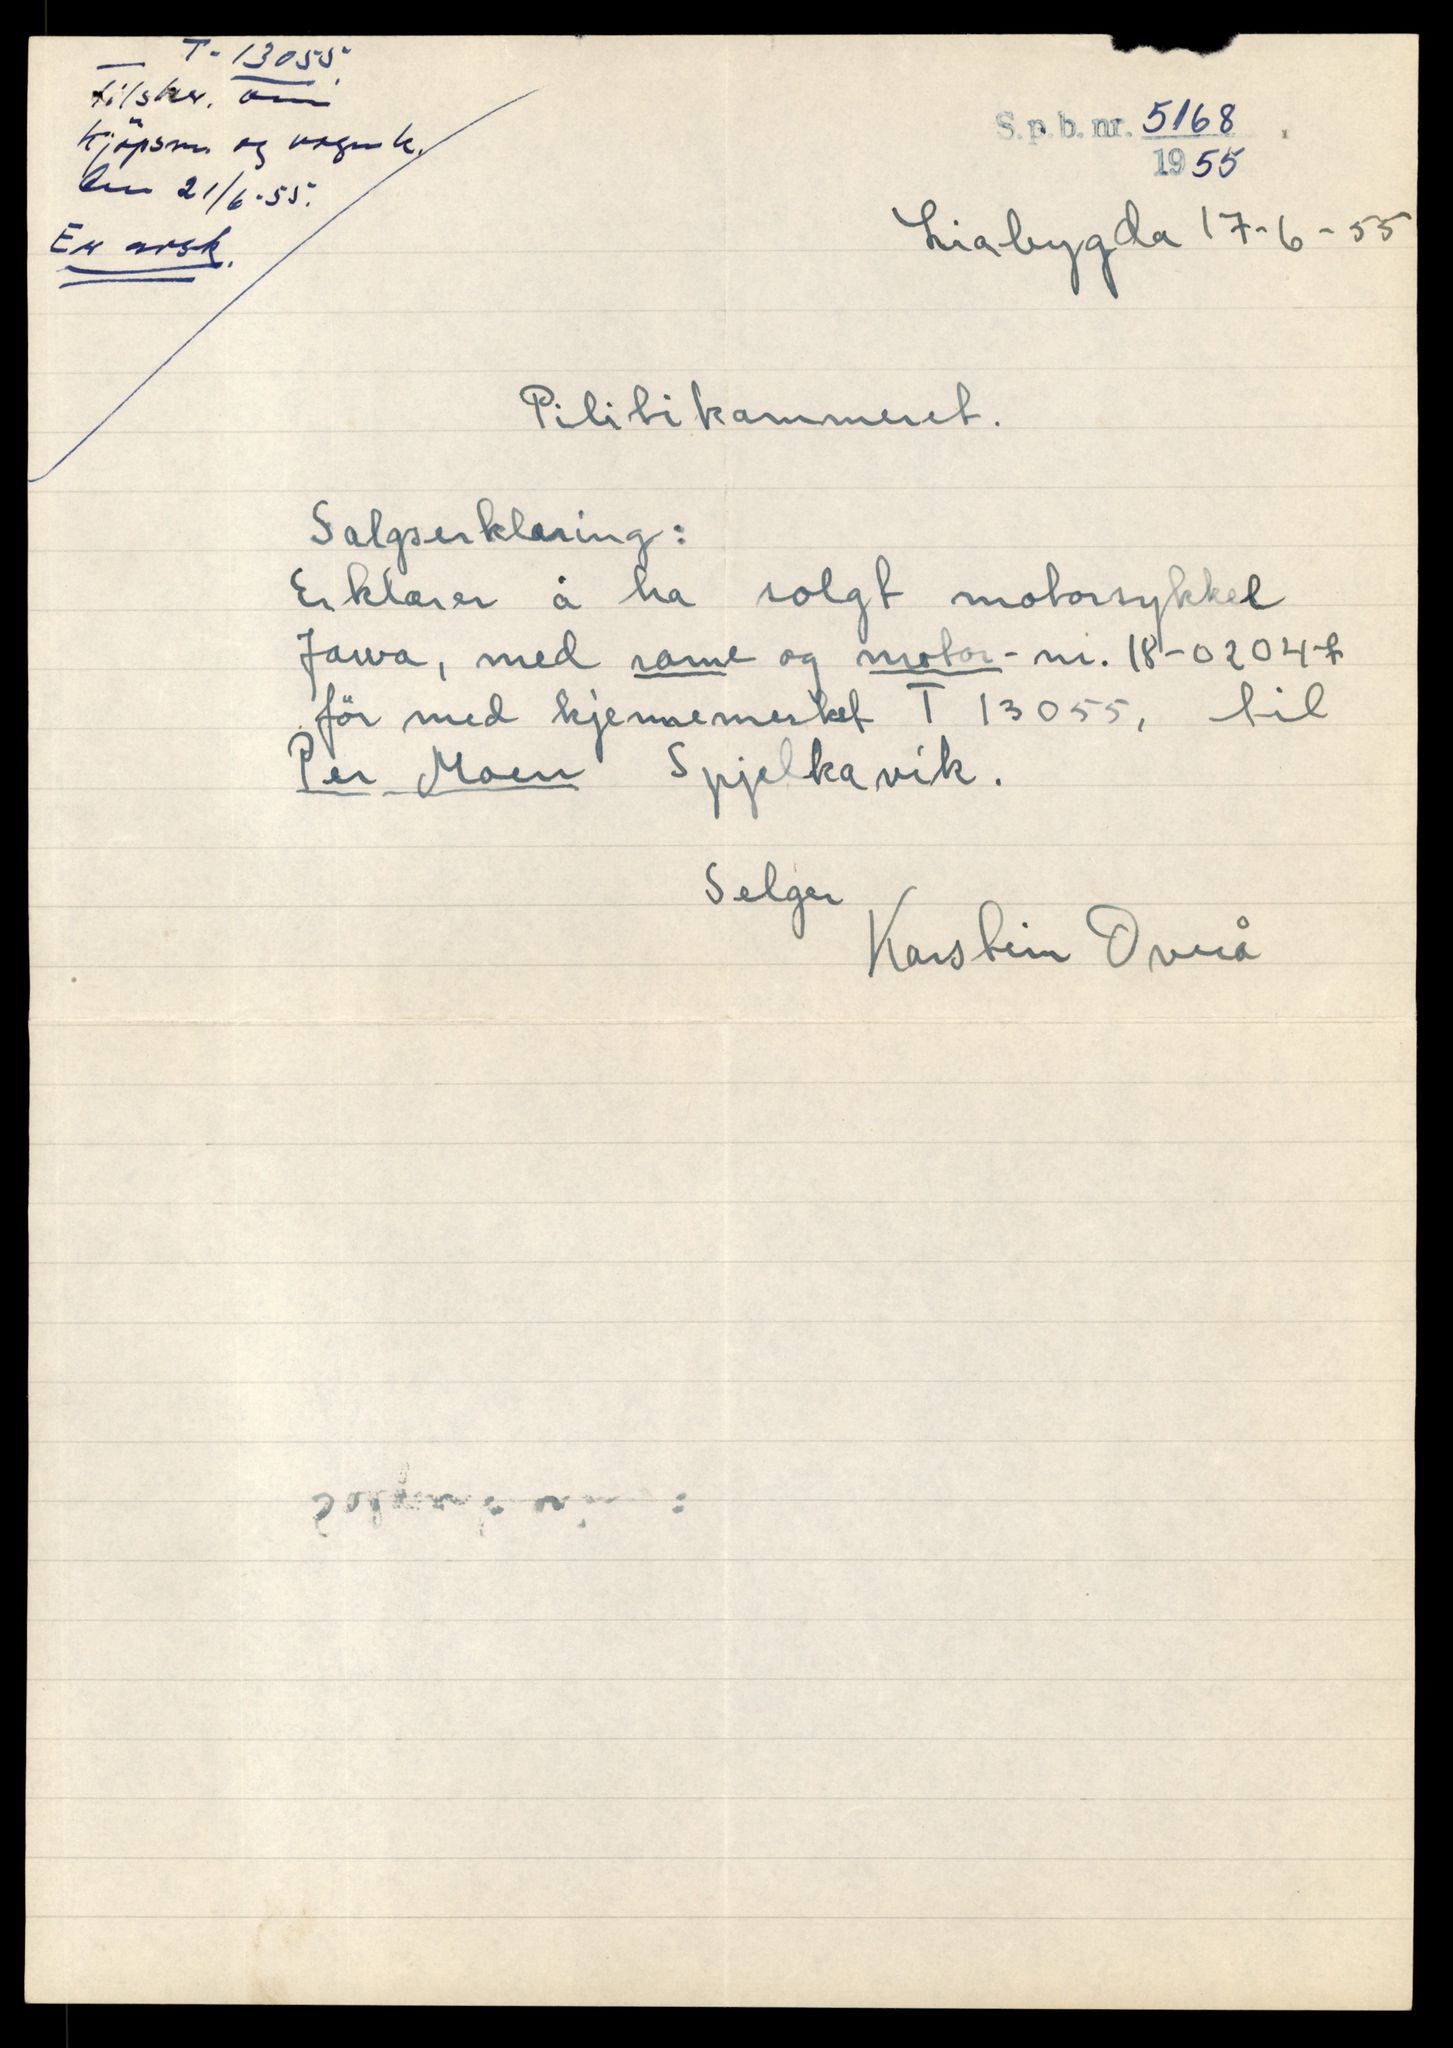 T-13055.
tilskr. om
kjöpsm. og vognk.
den 21/6-55.
Er avsk.
S.p.b. nr. 5168
1955
Liabygda 17-6-55
Pilitikammeret.
Salgserklæring:
Erklærer å ha solgt motorsykkel
Jawa, med rame og motor-nr. 18-0204
för med kjennemerket T 13055, til
Per Moen Spjelkavik.
Selger
Karstein Overå